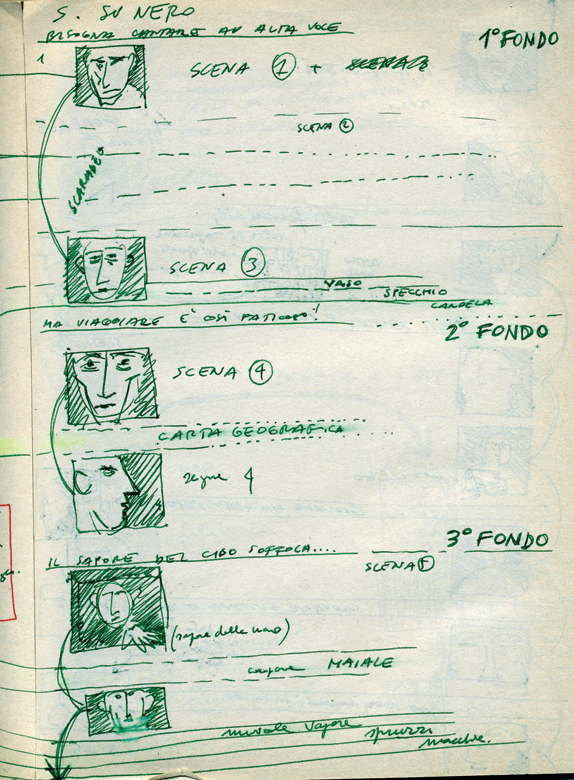 S. SU NERO
BISOGNA CANTARE AD ALTA VOCE
1° FONDO
1
SCENA 1 +
SCENA 2
SCARABEO
SCENA 3
VASO
SPECCHIO
CANDELA
MA VIAGGIARE E' COSÌ FATICOSO!
2° FONDO
SCENA 4
CARTA GEOGRAFICA
segue 4
3° FONDO
IL SAPORE DEL CIBO SOFFOCA....
SCENA 5
(sapore della mano)
MAIALE
nuvole vapore
spruzzi
macchie.